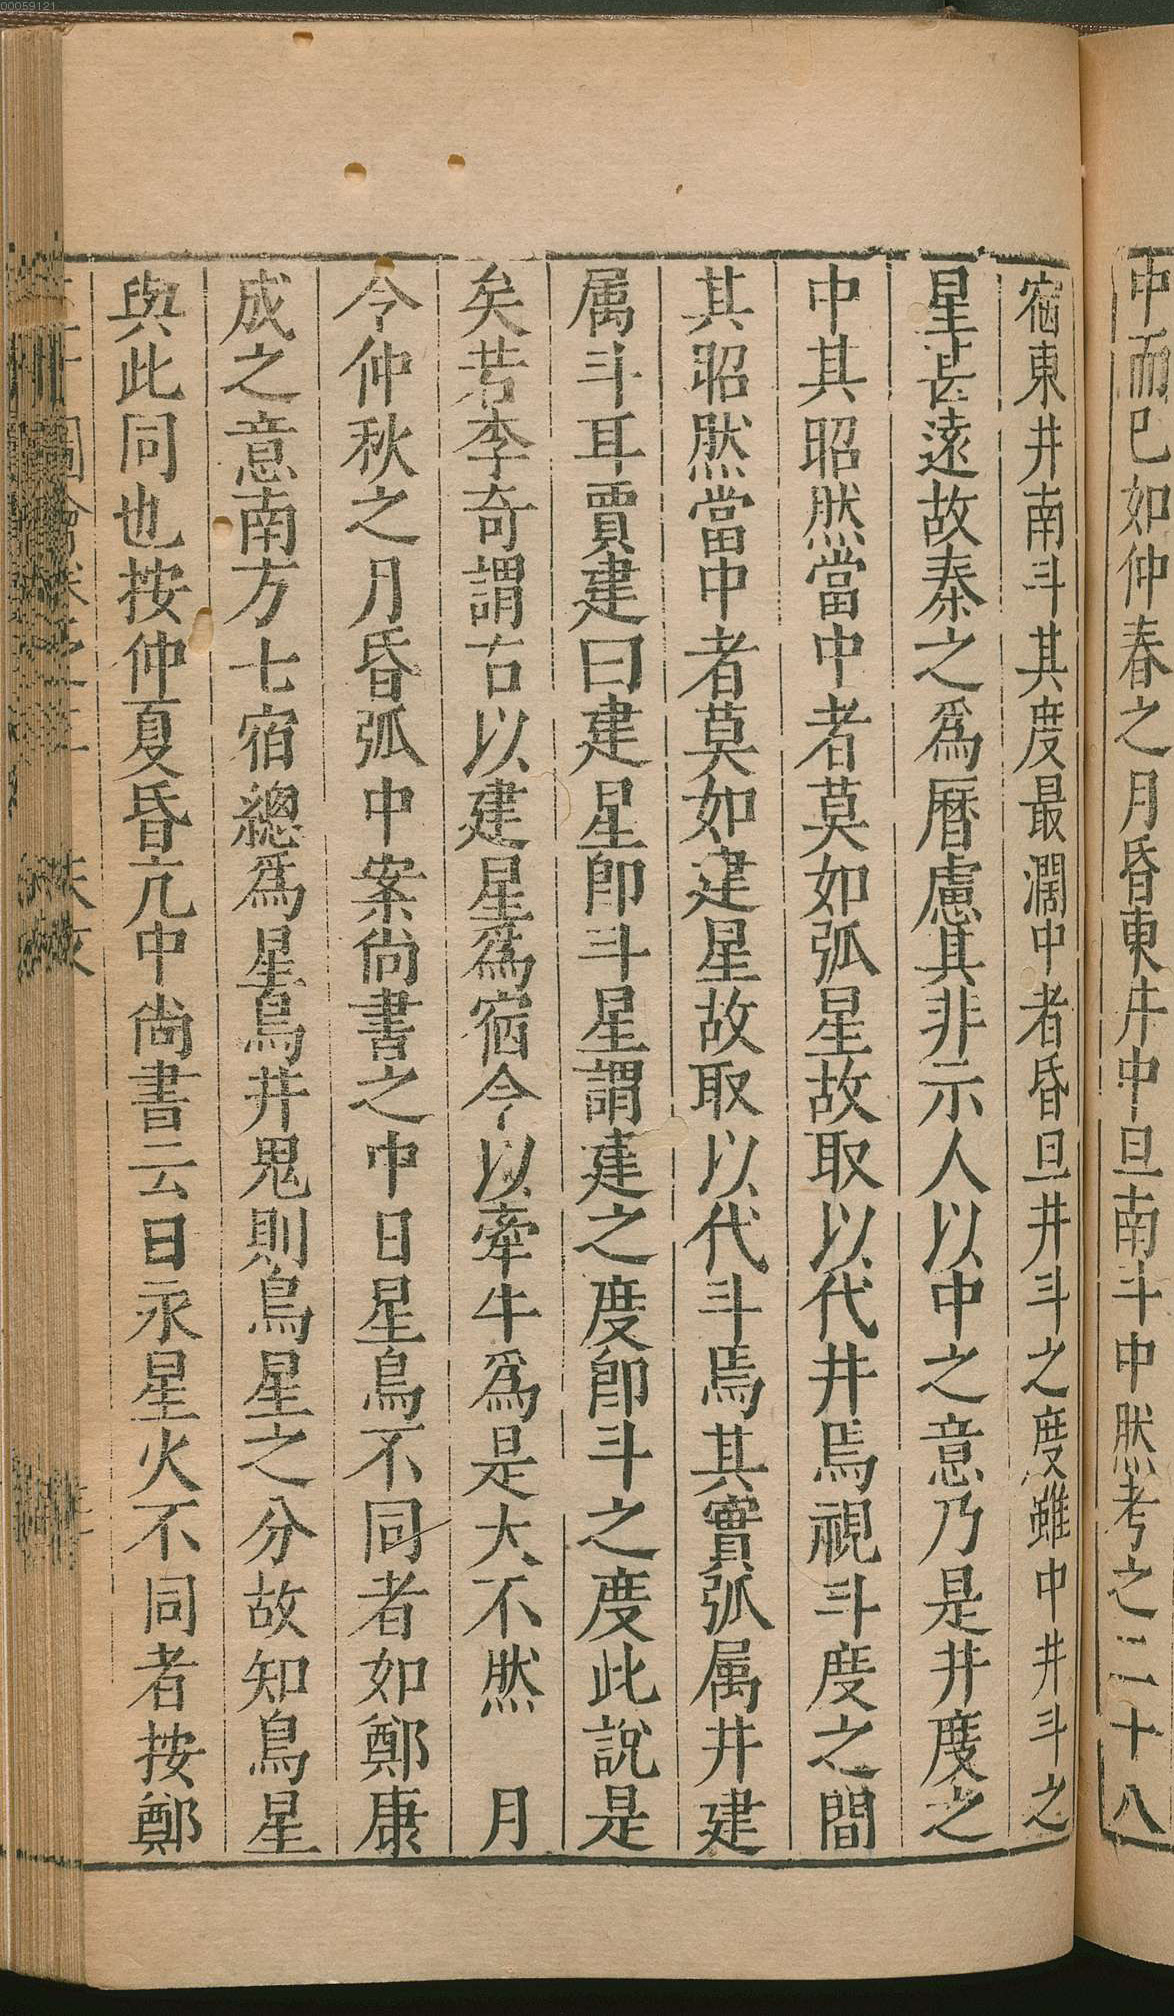 00059121
中而巳如仲春之月昏東井中旦南斗中然考之二十八
宿東井南斗其度最濶中者昏旦井斗之度雖中井斗之
星甚遠故秦之爲曆慮其非示人以中之意乃是井度之
中其昭然當中者莫如弧星故取以代井焉視斗度之間
其昭然當中者莫如建星故取以代斗焉其實弧属井建
属斗耳賈建曰建星卽斗星謂建之度卽斗之度此說是
矣若李奇謂古以建星爲宿今以牽牛爲是大不然 月
今仲秋之月昏弧中案尚書之中日星鳥不同者如鄭康
成之意南方七宿總爲星鳥井鬼則鳥星之分故知鳥星
與此同也按仲夏昏亢中尚書云日永星火不同者按鄭